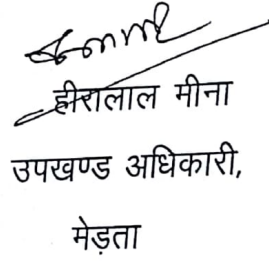 हीरालाल मीना
उपखण्ड अधिकारी,
मेड़ता